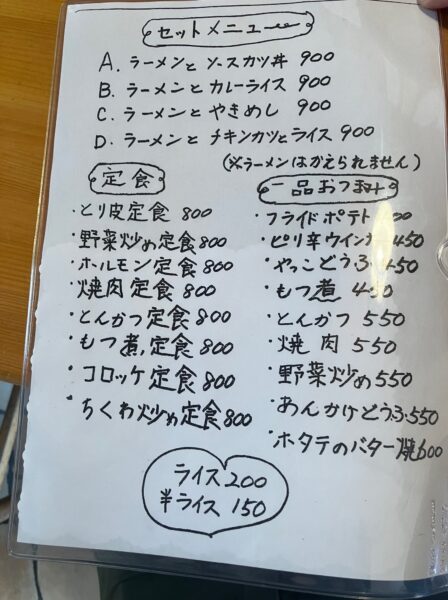 セットメニュー
A. ラーメンと ソースカツ丼 900
B. ラーメンと カレーライス 900
C. ラーメンと やきめし 900
D. ラーメンと チキンカツとライス 900
(※ラーメンはかえられません)
定食
・とり皮定食 800
・野菜炒め定食 800
・ホルモン定食 800
・焼肉定食 800
・とんかつ定食 800
・もつ煮定食 800
・コロッケ定食 800
・ちくわ炒め定食 800
一品おつまみ
・フライドポテト
・ピリ辛ウインナー 450
・やっこどうふ 450
・もつ煮 450
・とんかつ 550
・焼肉 550
・野菜炒め 550
・あんかけどうふ 550
・ホタテのバター焼 600
ライス 200
半ライス 150